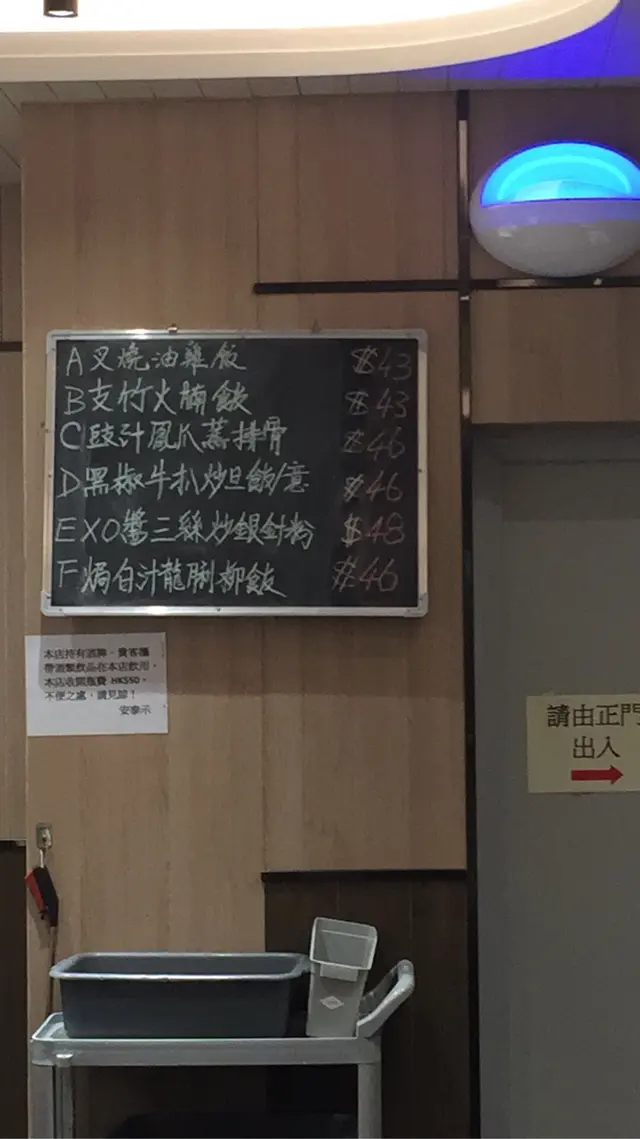 A 叉燒油雞飯 $43
B 支竹火腩飯 $43
C 豉汁鳳爪蒸排骨 $46
D 黑椒牛扒炒旦飯/意 $46
E XO醬三絲炒銀針粉 $48
F 焗白汁龍脷柳飯 $46
本店持有酒牌，貴客攜
帶酒類飲品在本店飲用，
本店收開瓶費 HK$50，
不便之處，請見諒！
安泰示
請由正門
出入